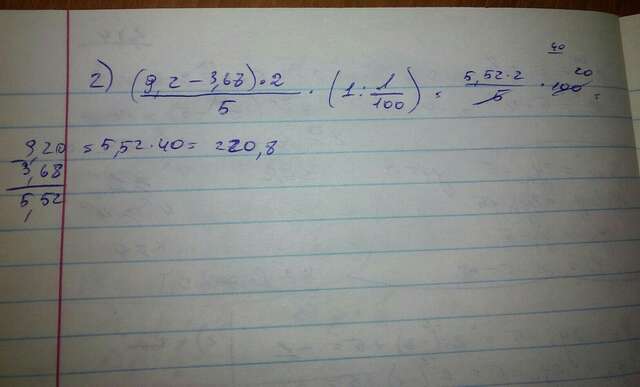 2) (9,2 - 3,68) · 2 / 5 · (1 : 1/100) = 5,52 · 2 / 5 · 100 =
40
20
= 5,52 · 40 = 220,8
9,20
3,68
5,52